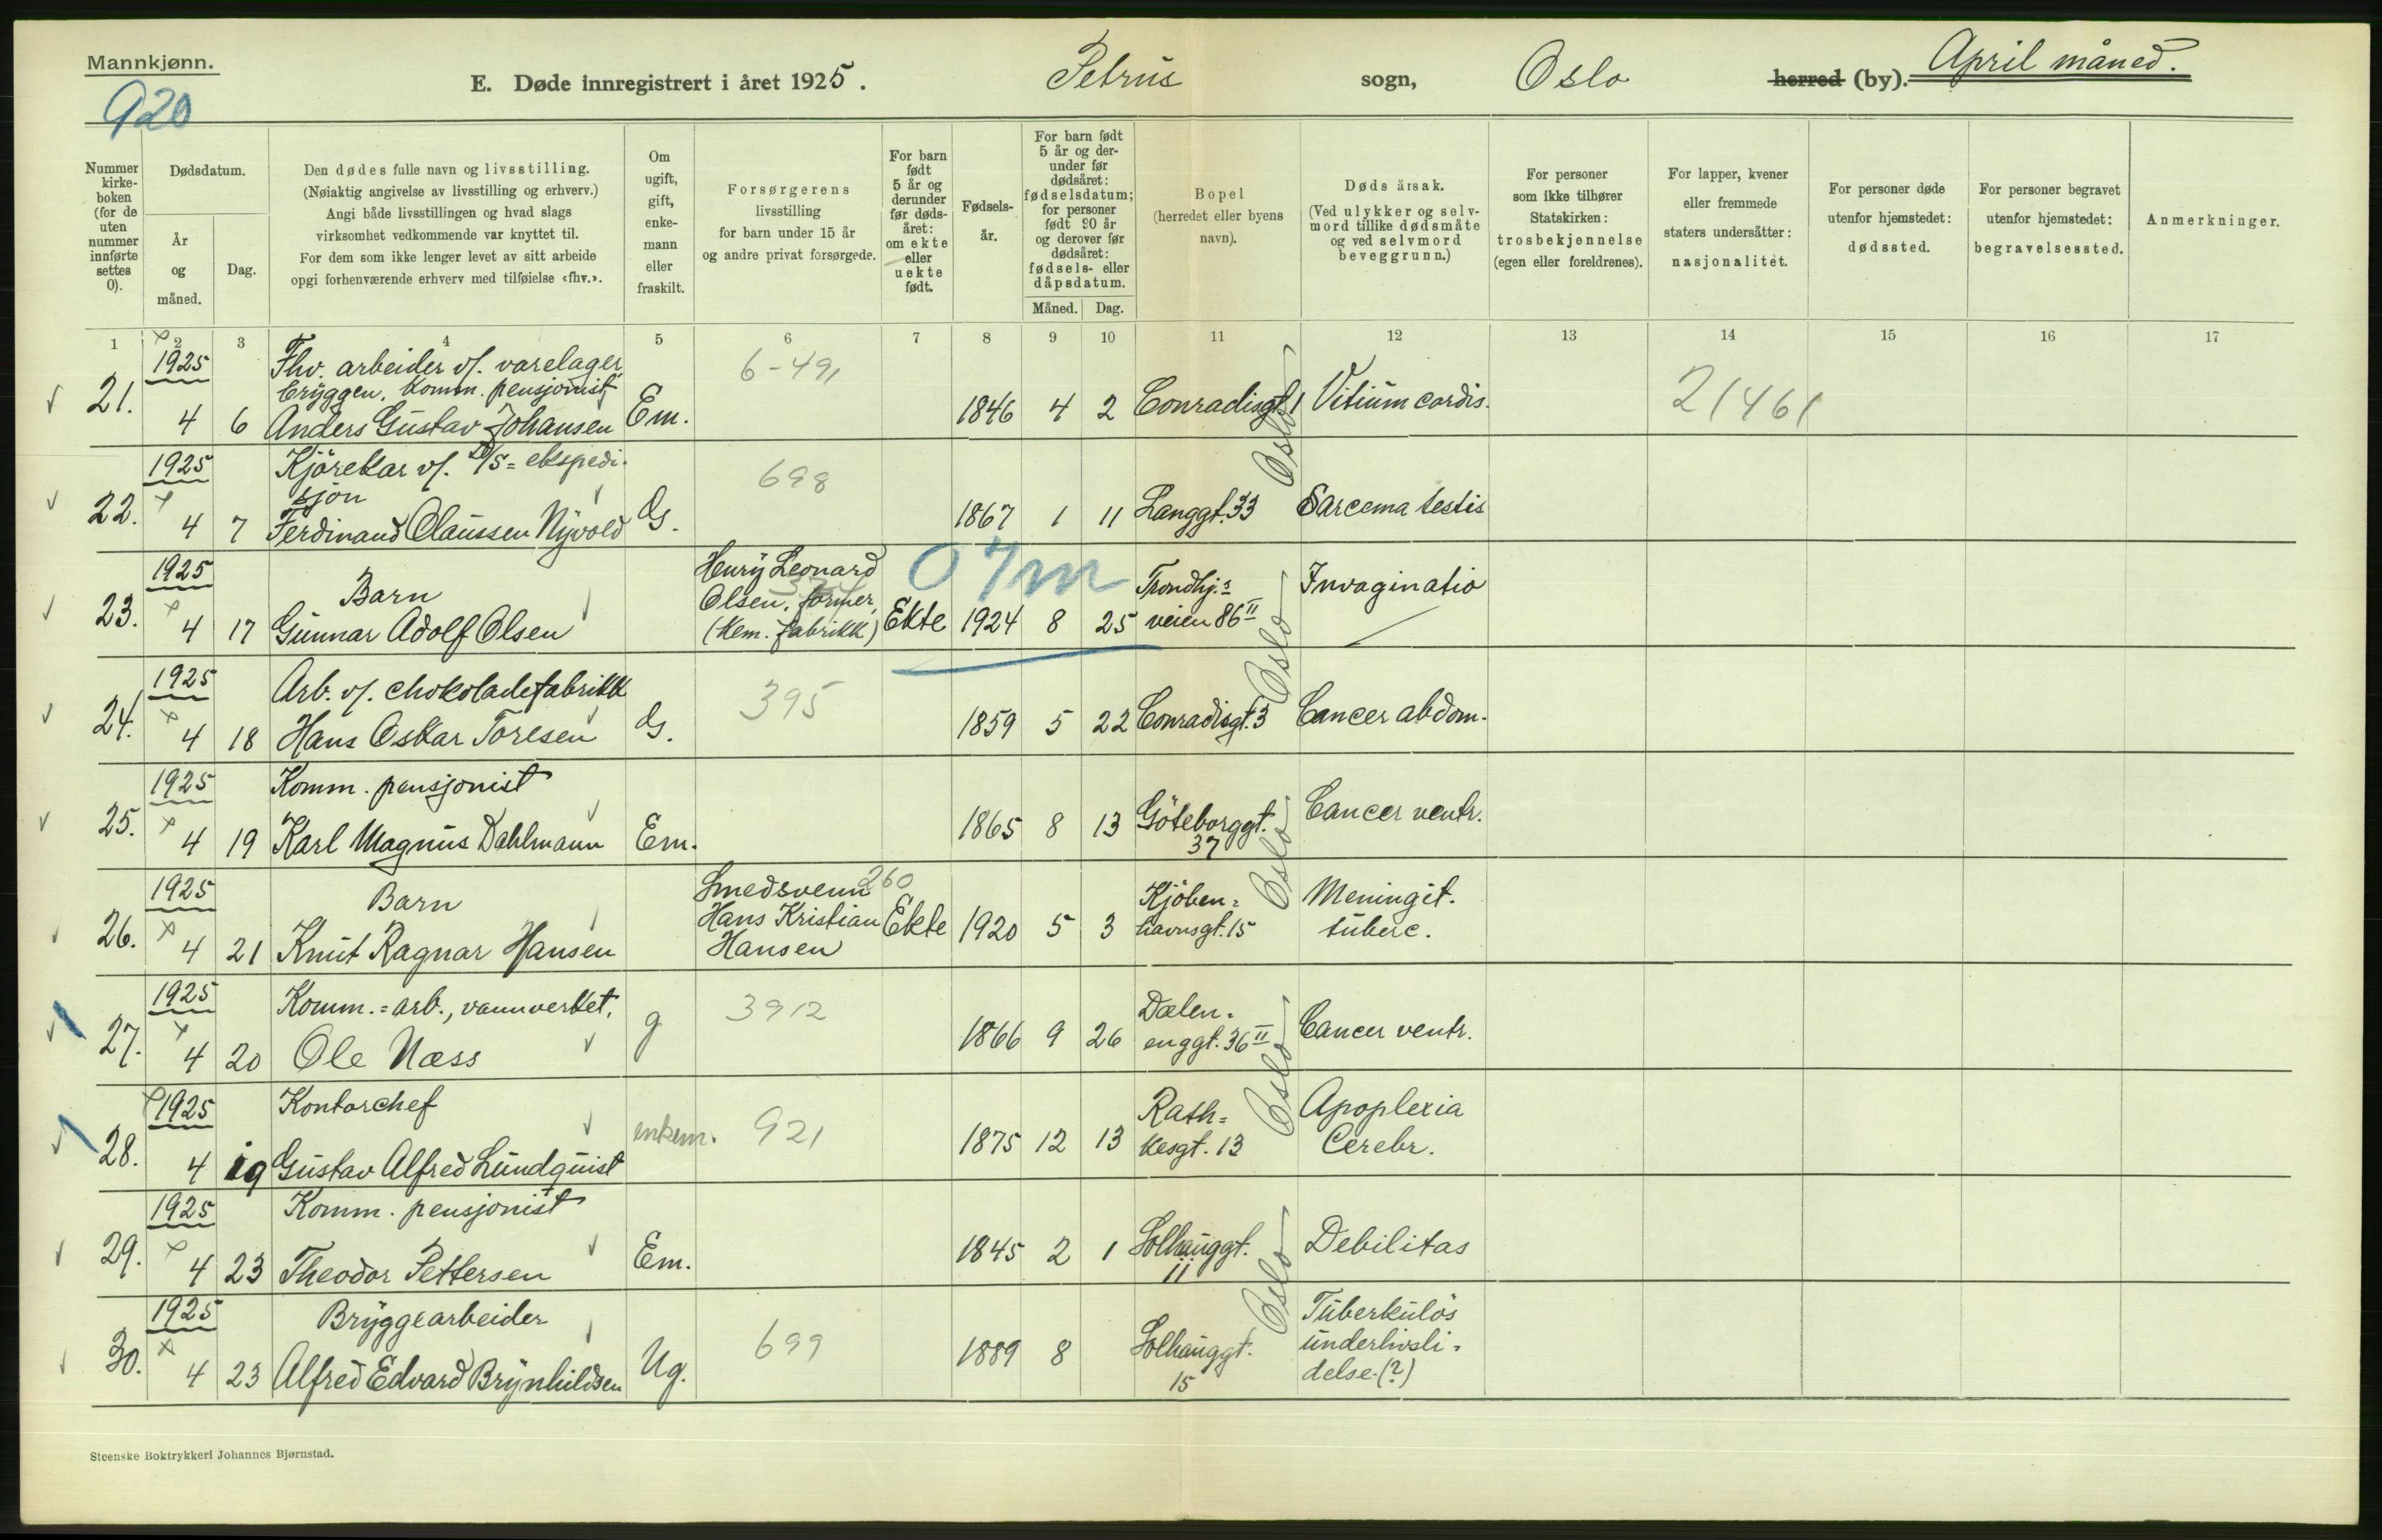 Mannkjønn.
920
E. Døde innregistrert i året 1925.
Petrus sogn, Oslo herred (by). April måned.
Nummer kirke- boken (for de uten nummer innførte settes 0).
Dødsdatum.
År og måned.
Dag.
Den dødes fulle navn og livsstilling.
(Nøiaktig angivelse av livsstilling og erhverv.)
Angi både livsstillingen og hvad slags
virksomhet vedkommende var knyttet til.
For dem som ikke lenger levet av sitt arbeide
opgi forhenværende erhverv med tilføielse «fhv.».
Om ugift, gift, enke- mann eller fraskilt.
Forsørgerens
livsstilling
for barn under 15 år
og andre privat forsørgede.
For barn født 5 år og derunder før døds- året: om ekte eller uekte født.
Fødsels- år.
For barn født 5 år og der- under før dødsåret: fødselsdatum; for personer født 90 år og derover før dødsåret: fødsels- eller dåpsdatum.
Måned. Dag.
Bopel
(herredet eller byens
navn).
Døds årsak.
(Ved ulykker og selv-
mord tillike dødsmåte
og ved selvmord
beveggrunn.)
For personer
som ikke tilhører
Statskirken:
trosbekjennelse
(egen eller foreldrenes).
For lapper, kvener
eller fremmede
staters undersåtter:
nasjonalitet.
For personer døde
utenfor hjemstedet:
dødssted.
For personer begravet
utenfor hjemstedet:
begravelsessted.
Anmerkninger.
1 2 3 4 5 6 7 8 9 10 11 12 13 14 15 16 17
1925 Fhv. arbeider v/. varelager, 6-491
bryggen, Komm. pensjonist,
21. 4 6 Anders Gustav Johansen Em. 1846 4 2 Conradisgt. 1 Oslo Vitium cordis. 21461
1925 Kjørekar v/. D/S= ekspedi-
sjon 698
22. 4 7 Ferdinand Claussen Nyvold G. 1867 1 11 Langgt. 33 Sarcema testis
1925 Barn Henry Leonard 07m Trondhj.s Invaginatio
Olsen, former,
23. 4 17 Gunnar Adolf Olsen (Kem. fabrikk) Ekte 1924 8 25 veien 86 II Oslo
1925 Arb. v/. chokoladefabrikk 395
24. 4 18 Hans Oskar Toresen G. 1859 5 22 Conradisgt. 3 Cancer abdom.
1925 Komm. pensjonist
25. 4 19 Karl Magnus Dahlmann Em. 1865 8 13 Göteborggt. Oslo Cancer ventr.
37
1925 Barn Smedsvenn 260 Kjöben= Meningit.
26. 4 21 Knut Ragnar Hansen Hans Kristian Ekte 1920 5 3 havnsgt. 15 tuberc.
Hansen
1925 Komm.=arb., vannverket, 3912 Dælen-
27. 4 20 Ole Næss g 1866 9 26 enggt. 36 II Oslo Cancer ventr.
1925 Kontorchef enkem. 921 Rath= Apoplexia
28. 4 19 Gustav Alfred Lundquist 1875 12 13 kesgt. 13 Cerebr.
1925 Komm. pensjonist
29. 4 23 Theodor Pettersen Em. 1845 2 1 Solhauggt. Oslo Debilitas
11
1925 Bryggearbeider 699 Tuberkuløs
30. 4 23 Alfred Edvard Brynhildsen Ug. 1889 8 Solhauggt. underlivsli-
15 delse (?)
Steenske Boktrykkeri Johannes Bjørnstad.